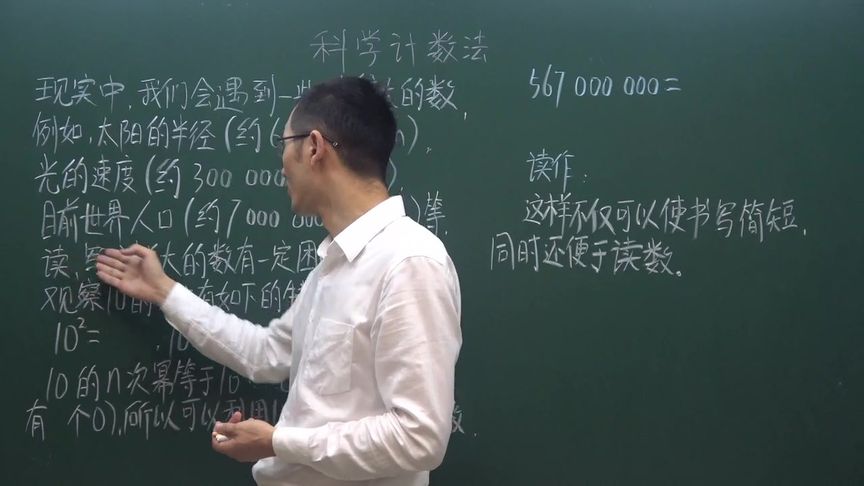 科学计数法
现实中,我们会遇到一些 的数,
例如,太阳的半径(约6 ),
光的速度(约300 000 )
目前世界人口(约7 000 000 )等.
读、 大的数有一定困
观察10的 有如下的
10²= ,10
10的n次幂等于10
有 个0),所以可以利用 数.
567 000 000=
读作:
这样不仅可以使书写简短,
同时还便于读数。